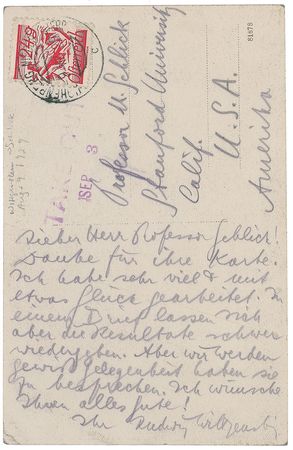 24 g
81878
SEP 3
Professor M. Schlick
Stanford University
Calif.
U.S.A.
Amerika
Lieber Herr Professor Schlick!
Danke für ihre Karte.
Ich habe sehr viel & mit
etwas Glück gearbeitet. In
einem Brief lassen sich
aber die Resultate schwer
wiedergeben. Aber wir werden
gewiss Gelegenheit haben sie
zu besprechen. Ich wünsche
Ihnen alles Gute!
Ihr Ludwig Wittgenstein